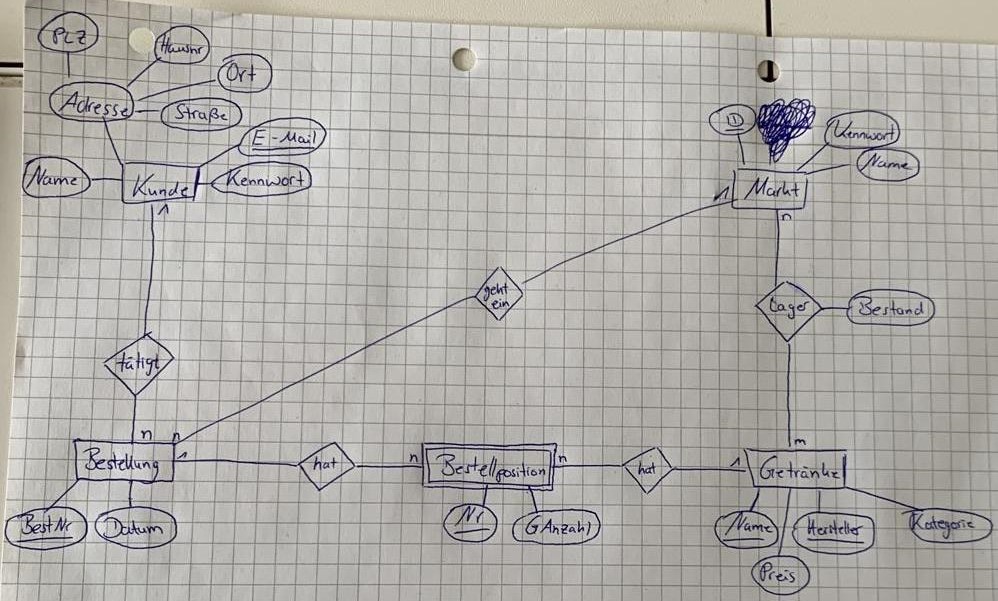 PLZ
Hausnr
Ort
Adresse
Straße
E-Mail
Name
Kunde
Kennwort
1
ID
Kennwort
Name
Markt
1
n
geht
ein
Lager
Bestand
tätigt
n
n
m
Bestellung
1
hat
n
Bestellposition
n
hat
1
Getränke
BestNr
Datum
Nr
GAnzahl
Name
Hersteller
Kategorie
Preis